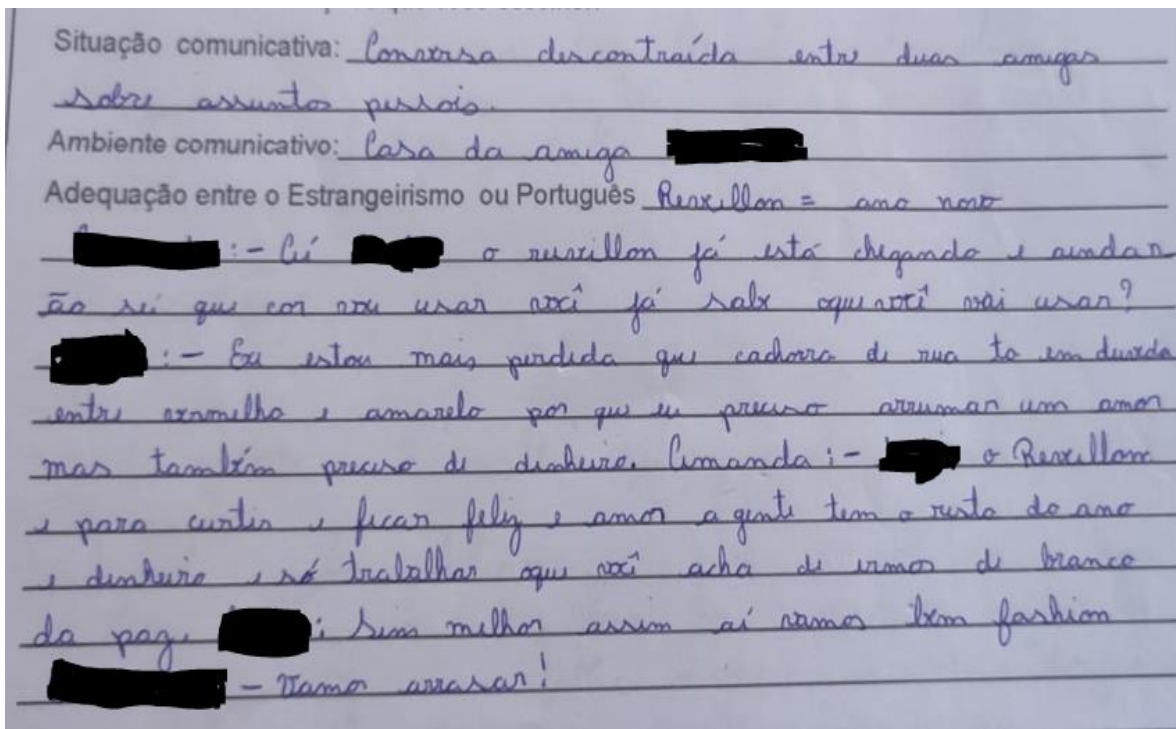 Situação comunicativa: Conversa descontraída entre duas amigas
sobre assuntos pessois.
Ambiente comunicativo: Casa da amiga
Adequação entre o Estrangeirismo ou Português Revellon = ano novo
:- o revillon já está chegando e aindan
ão sei que cor vou usar você já sabe oque você vai usar?
:- Eu estou mais perdida que cadhorra de rua to em duvida
entre vermelho e amarelo por que eu preciso arrumar um amor
mas também preciso de dinheiro. Amanda :- o Revellom
e para curtir e ficar feliz e amor a gente tem o resto do ano
e dinheiro e só trabalhar oque você acha de irmos de branco
da paz. : Sim melhor assim aí vamos bem fashion
- Vamo arrasar!